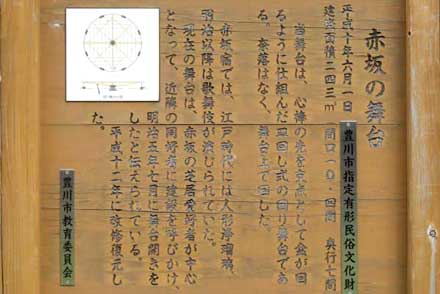 赤坂の舞台
豊川市指定有形民俗文化財
平成十年六月一日
建築面積二四三㎡ 間口一〇・四間 奥行七間
当舞台は、心棒の先を支点として盆が回
るように仕組んだ皿回し式の回り舞台であ
る。奈落はなく、舞台上で回した。
赤坂宿では、江戸時代には人形浄瑠璃、
明治以降は歌舞伎が演じられていた。
現在の舞台は、赤坂の芝居愛好者が中心
となって、近隣の同好者に建設を呼びかけ、
明治五年七月に舞台開きを
したと伝えられている。
平成十二年に改修復元し
た。
豊川市教育委員会